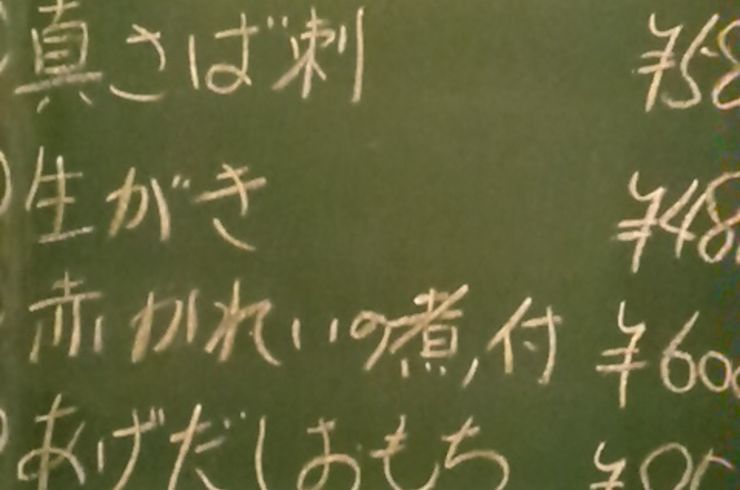 真さば刺 ¥58
生がき ¥48
赤かれいの煮付 ¥600
あげだしおもち